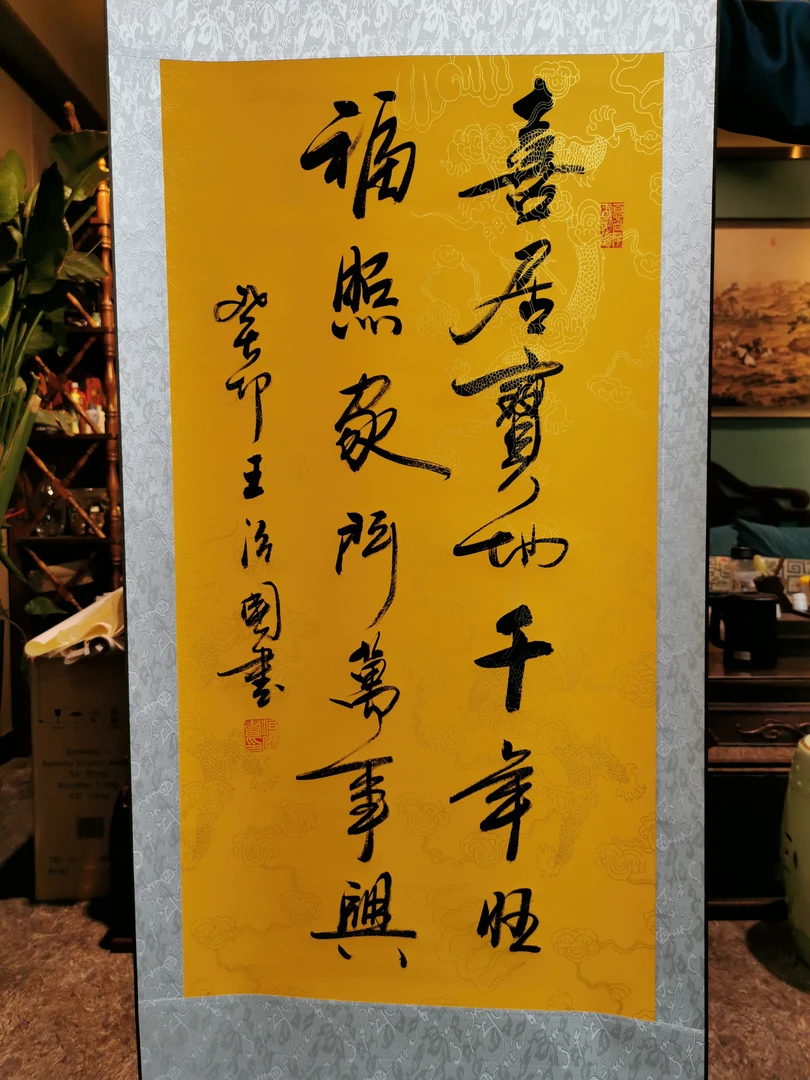 喜居寶地千年旺
福照家門萬事興
癸卯王治國書